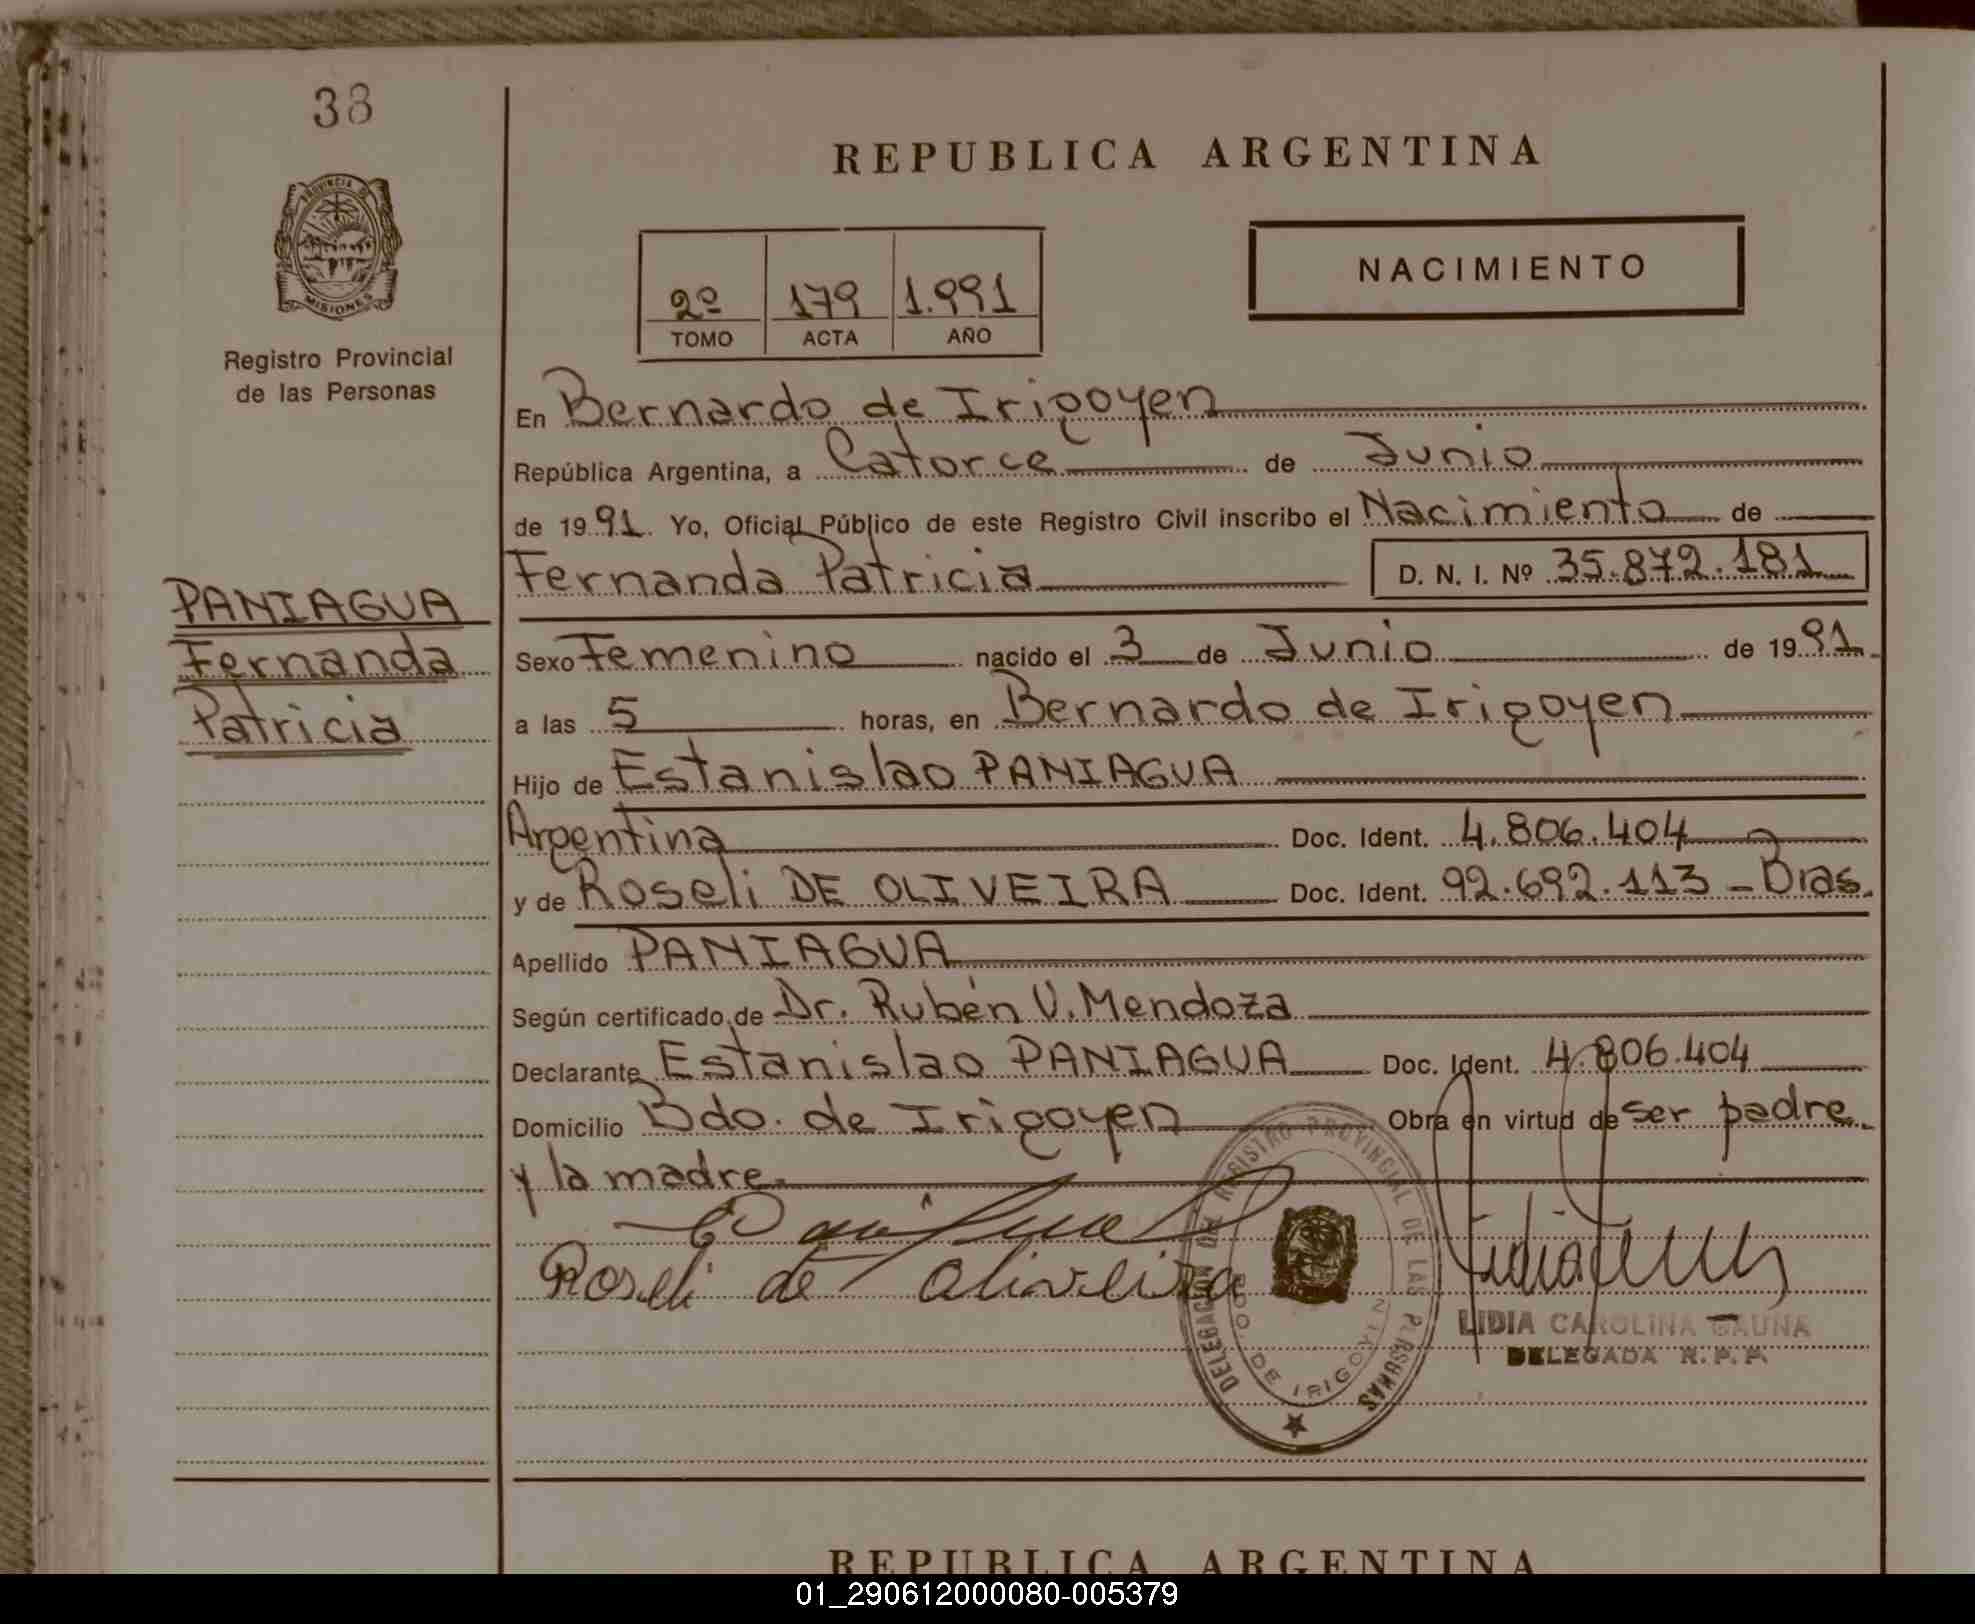 38
REPUBLICA ARGENTINA
PROVINCIA DE
MISIONES
NACIMIENTO
2º 179 1.991
TOMO ACTA AÑO
Registro Provincial
de las Personas
En Bernardo de Irigoyen
República Argentina, a Catorce de Junio
de 1991. Yo, Oficial Público de este Registro Civil inscribo el Nacimiento de
Fernanda Patricia D. N. I. Nº 35.872.181
PANIAGUA
Fernanda
Patricia
Sexo Femenino nacido el 3 de Junio de 1991
a las 5 horas, en Bernardo de Irigoyen
Hijo de Estanislao PANIAGUA
Argentina Doc. Ident. 4.806.404
y de Roseli DE OLIVEIRA Doc. Ident. 92.692.113 - Bras.
Apellido PANIAGUA
Según certificado de Dr. Rubén V. Mendoza
Declarante Estanislao PANIAGUA Doc. Ident. 4.806.404
Domicilio Bdo. de Irigoyen Obra en virtud de ser padre
y la madre.
Roseli de oliveira
DELEGACION DEL REGISTRO PROVINCIAL DE LAS PERSONAS
BDO. DE IRIGOYEN
LIDIA CAROLINA GAUNA
DELEGADA R. P. P.
REPUBLICA ARGENTINA
01_290612000080-005379